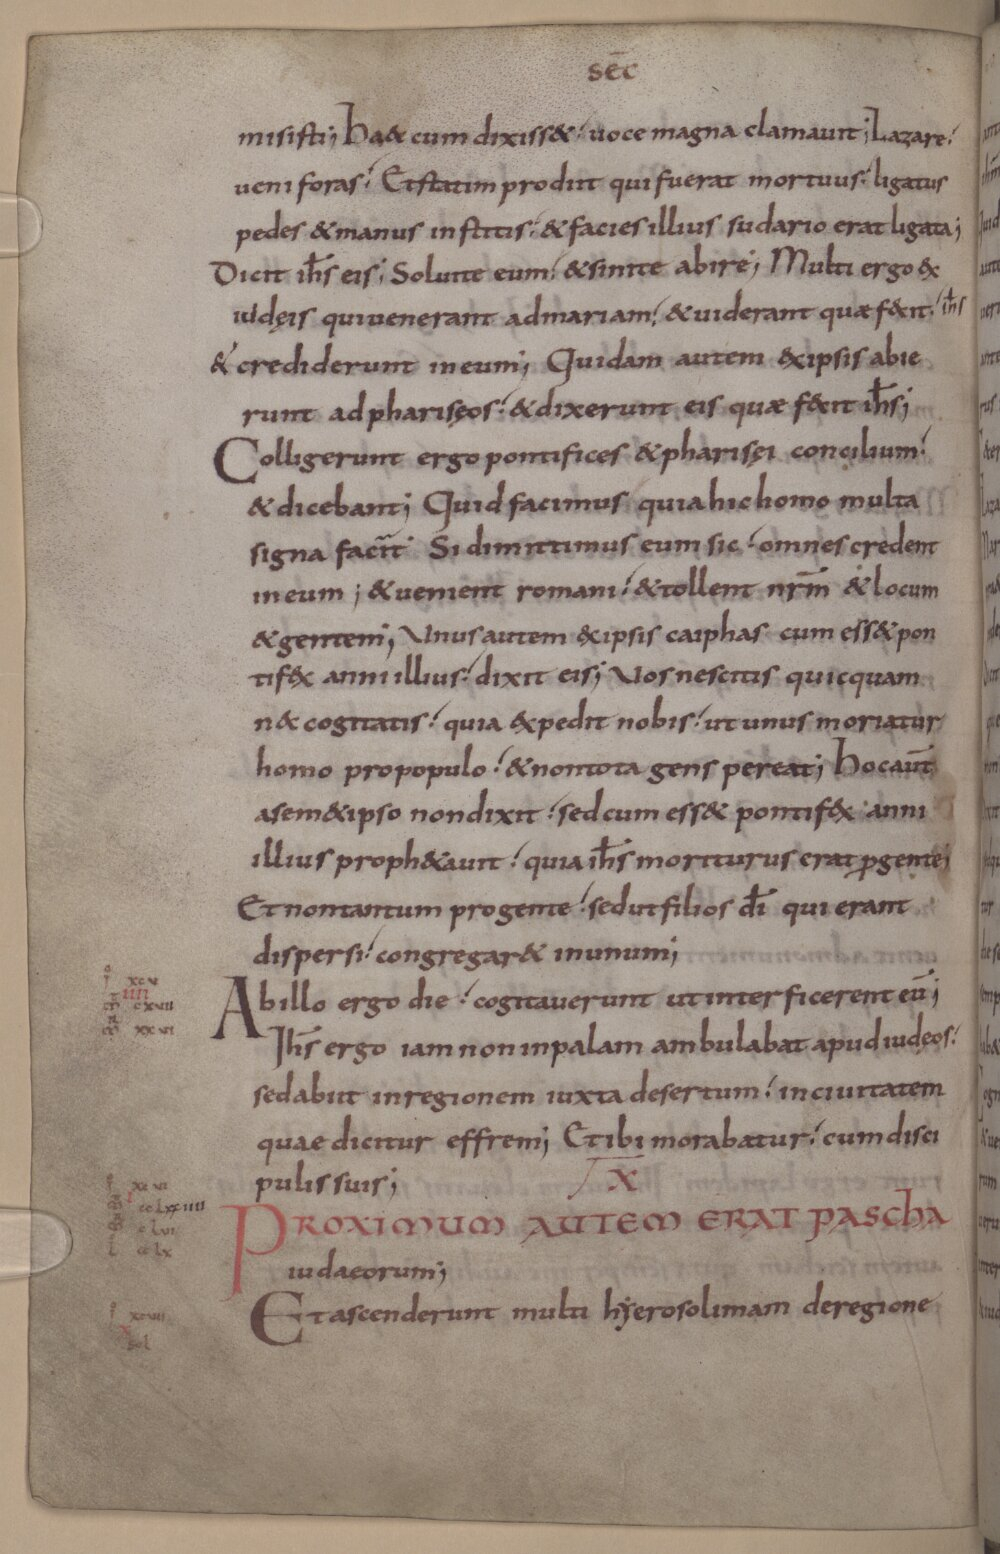 sēc
misisti; Haec& cum dixiss&; uoce magna clamauit; Lazare;
ueni foras; Et statim prodiit qui fuerat mortuus; ligatus
pedes & manus institis; & facies illius sudario erat ligata;
Dicit ihs̄ eis; Soluite eum; & sinite abire; Multi ergo &x
iudęis qui uenerant ad mariam; & uiderant quæ f&it; ihs̄
& crediderunt in eum; Quidam autem &x ipsis abie
runt ad pharisęos; & dixerunt eis quæ f&it ihs̄;
Colligerunt ergo pontifices & pharisęi concilium;
& dicebant; Quid facimus quia hic homo multa
signa facit Si dimittimus eum sic; omnes credent
in eum; & uenient romani; & tollent nr̄m & locum
& gentem; Vnus autem &x ipsis caiphas cum ess& pon
tif&x anni illius; dixit eis; Vos nescitis quicquam
n& cogitatis; quia &xpedit nobis; ut unus moriatur
homo pro populo; & non tota gens pereat; Hoc aut̄
a sem&ipso non dixit; sed cum ess& pontif&x anni
illius proph&auit; quia ihs̄ moriturus erat ꝑ gente;
Et non tantum pro gente; sed ut filios dī qui erant
dispersi; congregar& in unum;
Ab illo ergo die; cogitauerunt ut interficerent eū;
Ihs̄ ergo iam non in palam ambulabat apud iudęos;
sed abiit in regionem iuxta desertum; in ciuitatem
quae dicitur effrem; Et ibi morabatur; cum disci
pulis suis; X
PROXIMUM AUTEM ERAT PASCHA
iudaeorum;
Et ascenderunt multi hyerosolimam de regione